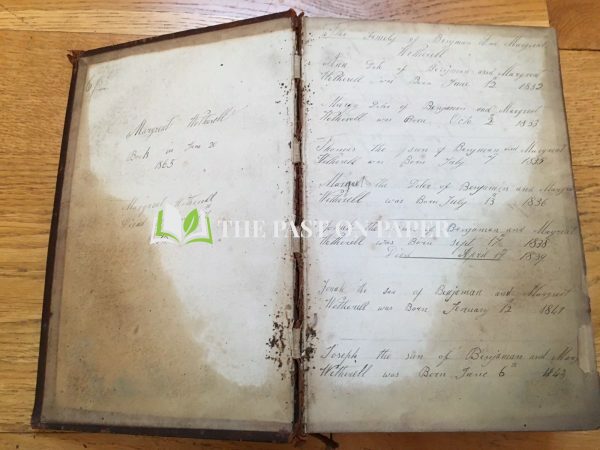 6/-
Margreat Wetherell
Book in June 20
1865
Margreat Wetherell
THE PAST ON PAPER
The Family of Benjman and Margreat
Wetherell
Ann Doh of Benjman and Margreat
Wetherell was Born June 12 1832
Mary Doter of Benjamin and Margreat
Wetherell was Born Oct 2 1833
Thomas the son of Benjman and Margreat
Wetherell was Born July 9 1835
Margret the Doter of Benjamin and Margreat
Wetherell was Born July 13 1836
the Benjaman and Margreat
Wetherell was Born sept 17 1838
Died April 19 1839
Jonah the son of Benjaman and Margreat
Wetherell was Born Jenuary 12 1841
Joseph the son of Benjaman and Mar
Wetherell was Born June 6th 1843